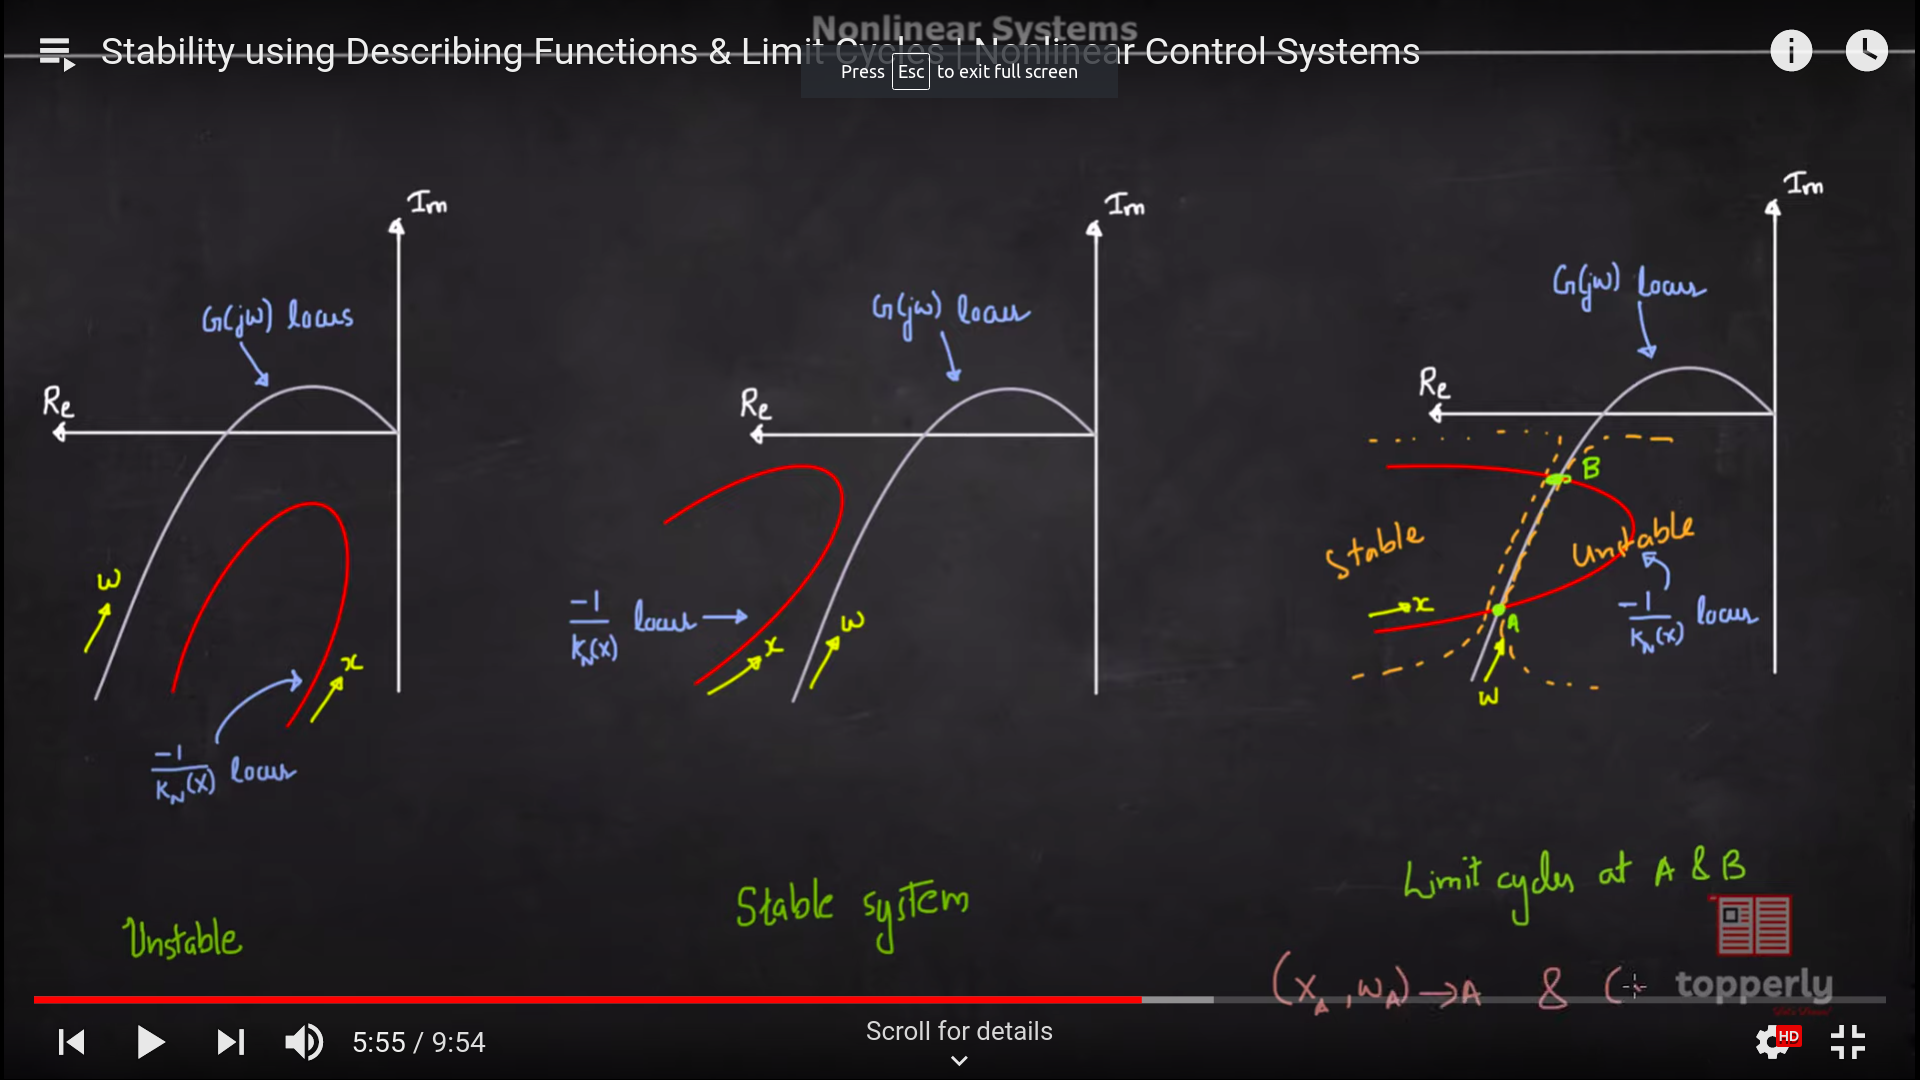 Nonlinear Systems
Stability using Describing Functions & Limit Cycles | Nonlinear Control Systems
Press Esc to exit full screen
Im
G(jw) locus
Re
w
x
-1/K_N(x) locus
Unstable
Im
G(jw) locus
Re
-1/K_N(x) locus
x
w
Stable system
Im
G(jw) locus
Re
B
Stable
Unstable
x
A
-1/K_N(x) locus
w
Limit cycles at A & B
(X_A, w_A) → A & (
topperly
5:55 / 9:54
Scroll for details
HD